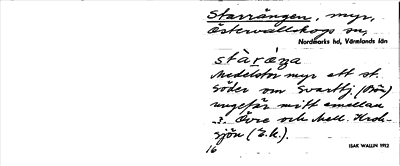 Starrängen, myr,
Östervallskogs sn,
Nordmarks hd, Värmlands län
Medelstor myr ett st.
söder om Svarttj. (Hån)
ungefär mitt emellan
Övre och Mell.
sjön (E.k.).
16
ISAK WALLIN 1912